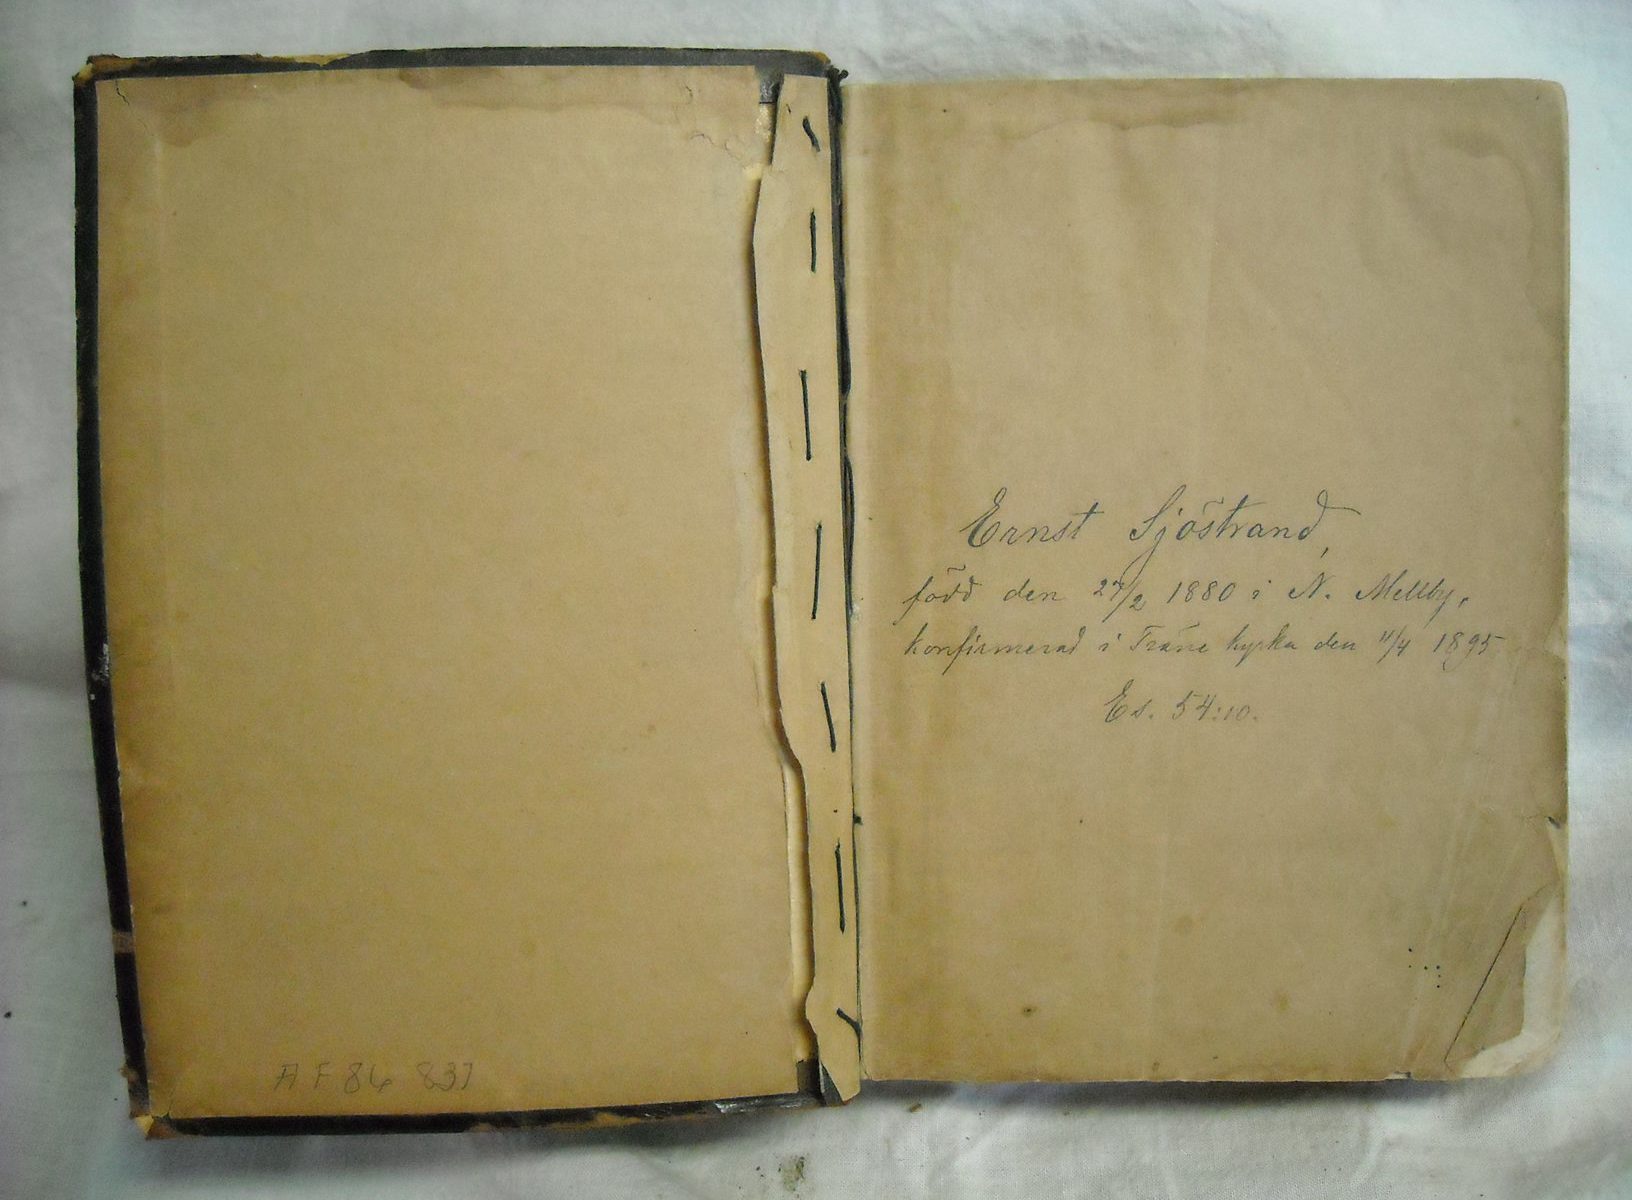 A F 84 837
Ernst Sjöstrand,
född den 27/2 1880 i N. Mellby,
konfirmerad i Träne kyrka den 11/4 1895
Es. 54:10.